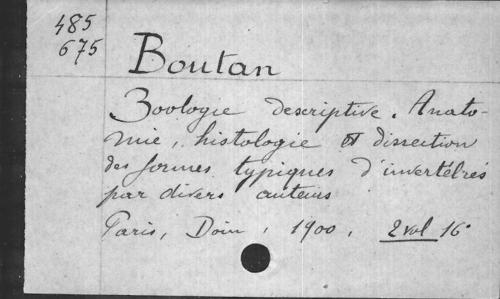 485
675
Boutan
Zoologie descriptive. Anato-
mie, histologie et dissection
des formes typiques d'invertébrés
par divers auteurs
Paris, Doin, 1900, 2 vol 16°